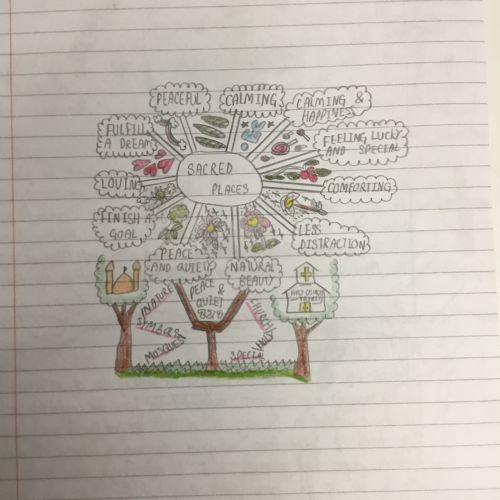 PEACEFUL
CALMING
CALMING &
HAPPINES
FULFILL
A DREAM
FEELING LUCKY
AND SPECIAL
SACRED
PLACES
LOVING
COMFORTING
FINISH A
GOAL
LESS
DISTRACTION
PEACE
AND QUIETY
NATURAL
BEAUTY
NATURE
PEACE
&
QUIET
SYMBOLS
MOSQUES
SPECIAL
HOLY CHURCH
TRINITY